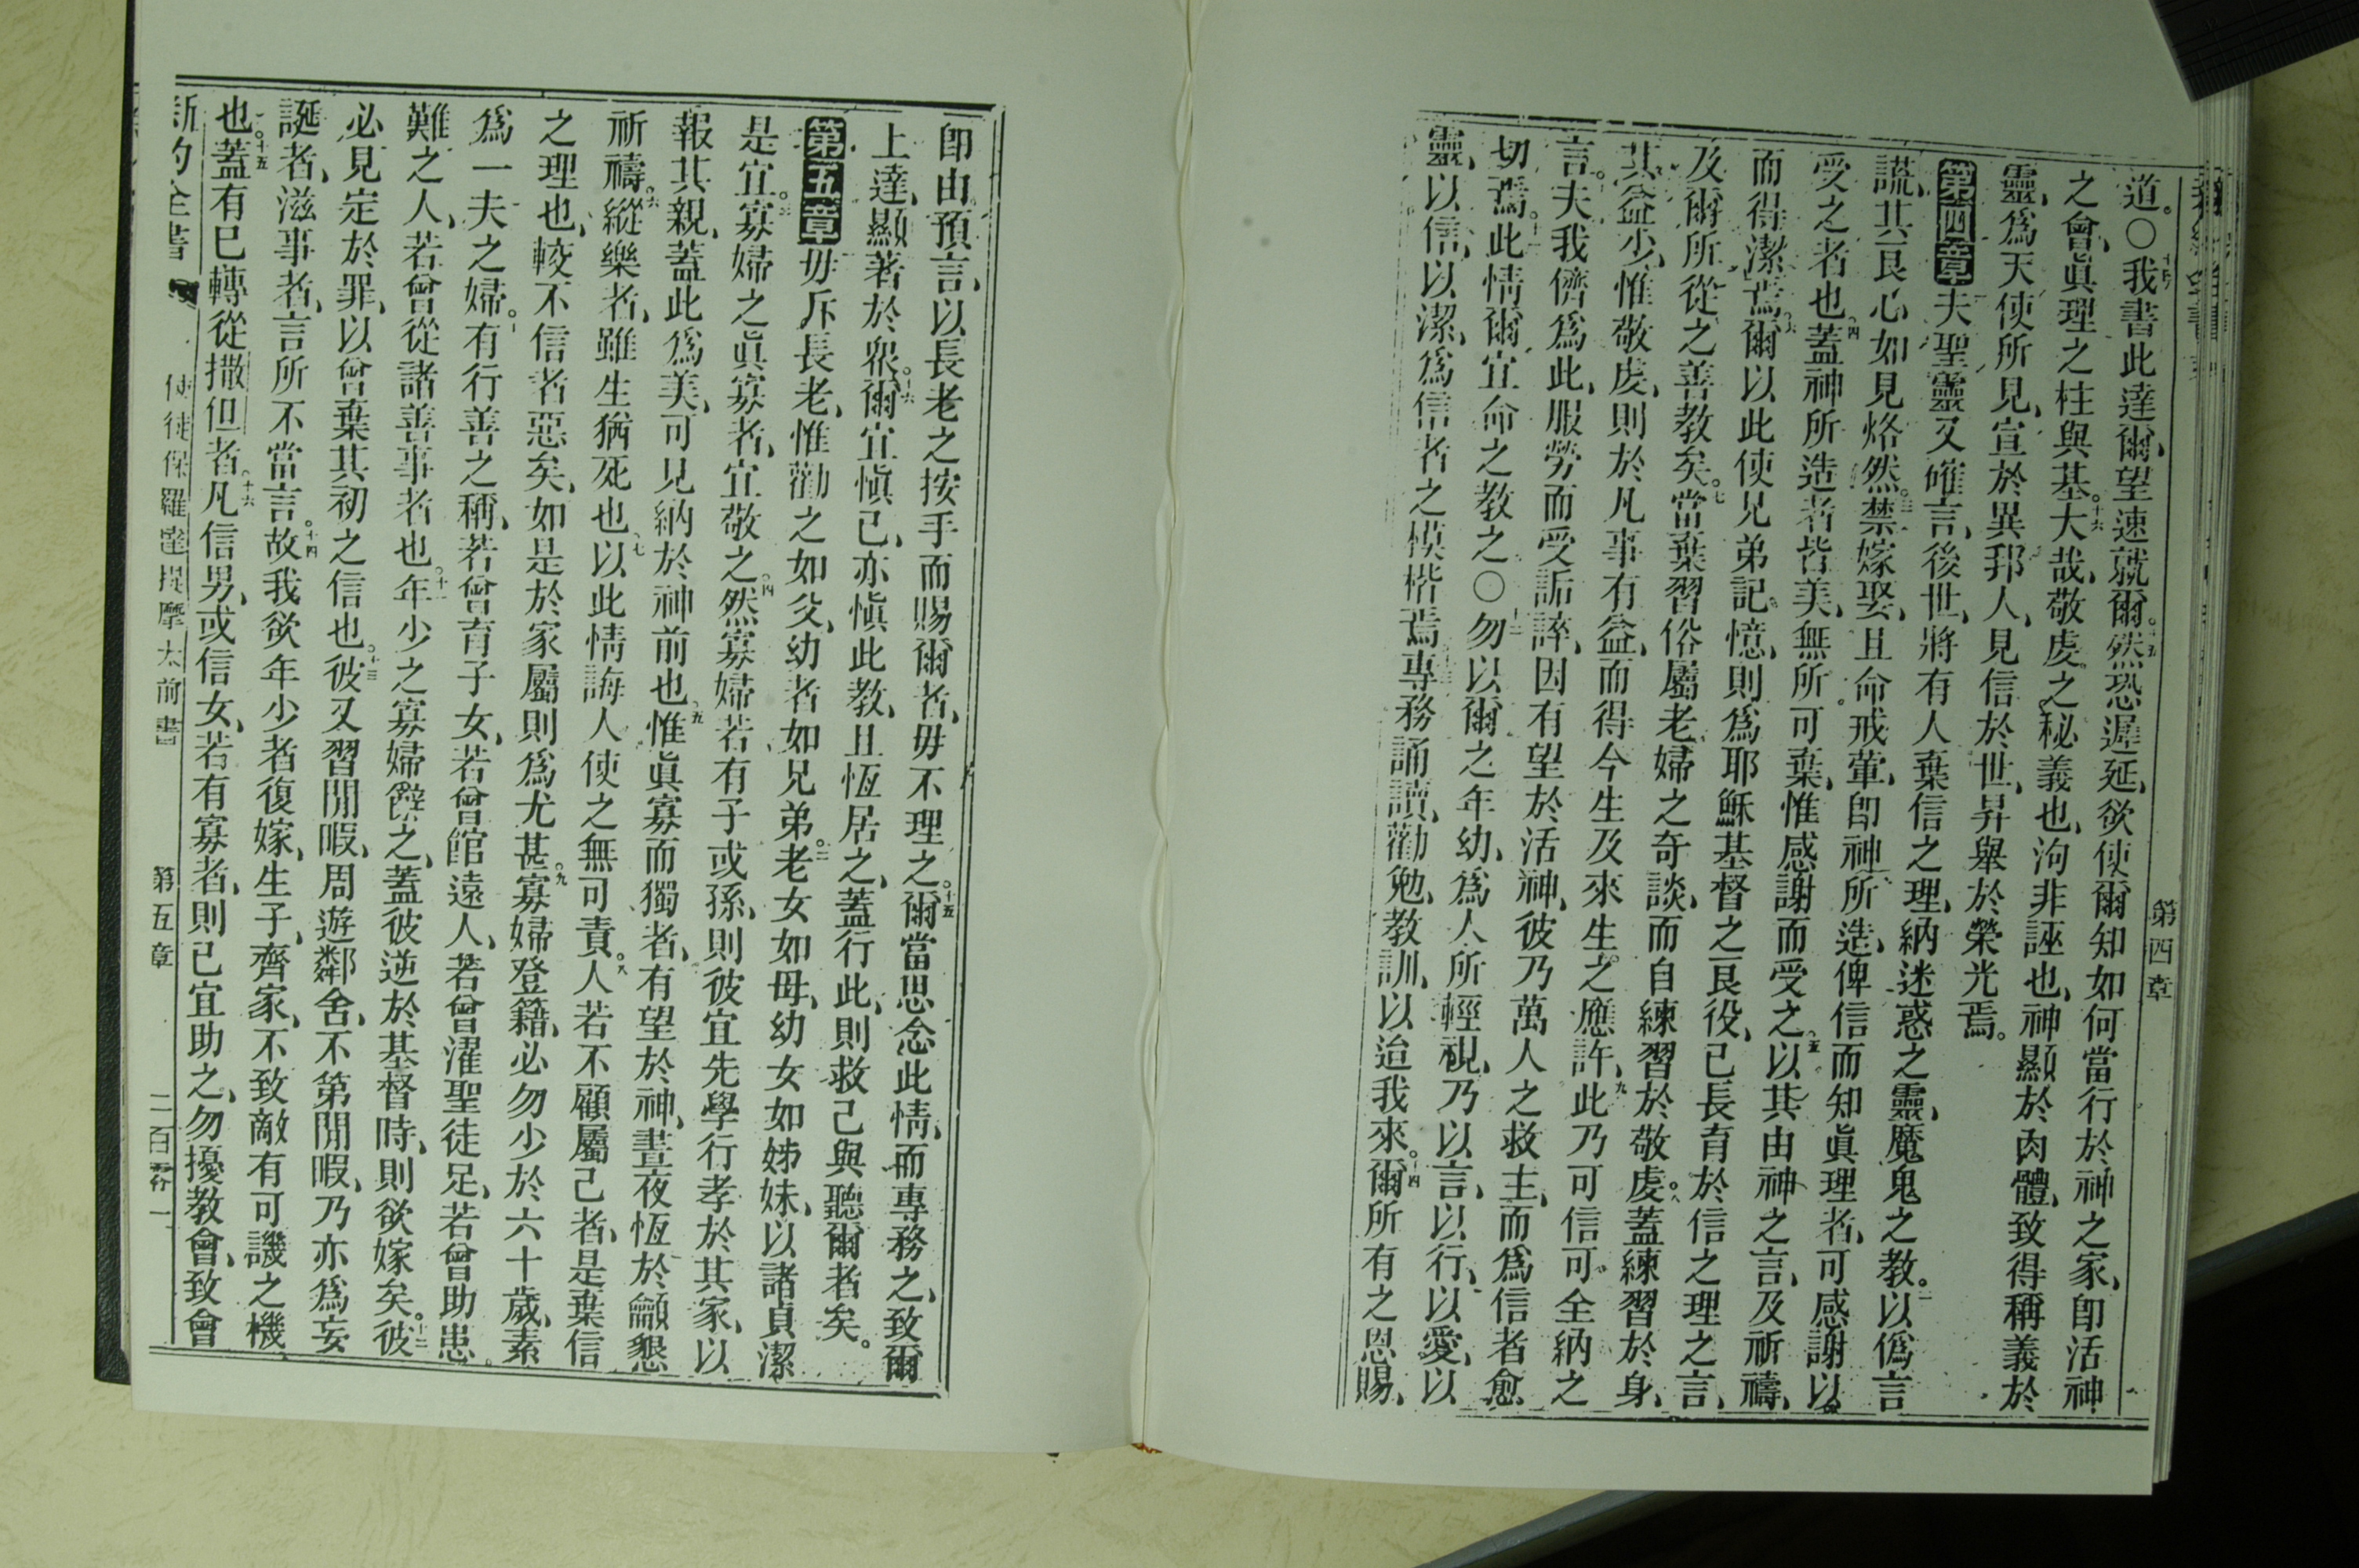 第四章
道。○十四我書此達爾、望速就爾。十五然恐遲延、欲使爾知如何當行於神之家、卽活神
之會、眞理之柱與基。十六大哉、敬虔之秘義也、泃非誣也、神顯於肉體、致得稱義於
靈、爲天使所見、宣於異邦人、見信於世、昇舉於榮光焉。
第四章夫聖靈又確言、後世、將有人棄信之理、納迷惑之靈、魔鬼之教。二以僞言
謊、其良心如見烙然。三禁嫁娶、且命戒葷、卽神所造、俾信而知眞理者、可感謝以
受之者也。四蓋神所造者皆美、無所可棄、惟感謝而受之。五以其由神之言、及祈禱、
而得潔焉。六爾以此使兄弟記憶、則爲耶穌基督之良役、已長育於信之理之言、
及爾所從之善教矣。七當棄習俗屬老婦之奇談、而自練習於敬虔。八蓋練習於身、
其益少、惟敬虔、則於凡事有益、而得今生及來生之應許、九此乃可信可全納之
言。十夫我儕爲此、服勞而受詬誶、因有望於活神、彼乃萬人之救主、而爲信者愈
切焉。十一此情爾宜命之教之○十二勿以爾之年幼、爲人所輕視、乃以言、以行、以愛、以
靈、以信、以潔、爲信者之模楷焉十三專務誦讀、勸勉、教訓、以迨我來。十四爾所有之恩賜、
卽由預言、以長老之按手而賜爾者、毋不理之。十五爾當思念此情、而專務之、致爾
上達、顯著於衆。十六爾宜愼己、亦愼此教、且恆居之、蓋行此、則救己與聽爾者矣。
第五章毋斥長老、惟勸之如父、幼者如兄弟。二老女如母、幼女如姊妹、以諸貞潔
是宜。三寡婦之眞寡者、宜敬之。四然寡婦若有子或孫、則彼宜先學行孝於其家、以
報其親、蓋此爲美、可見納於神前也。五惟眞寡而獨者、有望於神、晝夜恆於籲懇
祈禱。六縱樂者、雖生猶死也。七以此情誨人使之無可責。八人若不顧屬己者、是棄信
之理也、較不信者惡矣、如是於家屬則爲尤甚。九寡婦登籍、必勿少於六十歲、素
爲一夫之婦。十有行善之稱、若曾育子女、若曾館遠人、若曾濯聖徒足、若曾助患
難之人、若曾從諸善事者也。十一年少之寡婦辭之、蓋彼逆於基督時、則欲嫁矣。十二彼
必見定於罪、以曾棄其初之信也。十三彼又習閒暇、周遊鄰舍、不第閒暇、乃亦爲妄
誕者、滋事者、言所不當言。十四故我欲年少者復嫁、生子、齊家、不致敵有可譏之機
也。十五蓋有已轉從撒但者。十六凡信男、或信女、若有寡者、則已宜助之、勿擾教會、致會
新約全書　使徒保羅達提摩太前書　第五章　二百零一